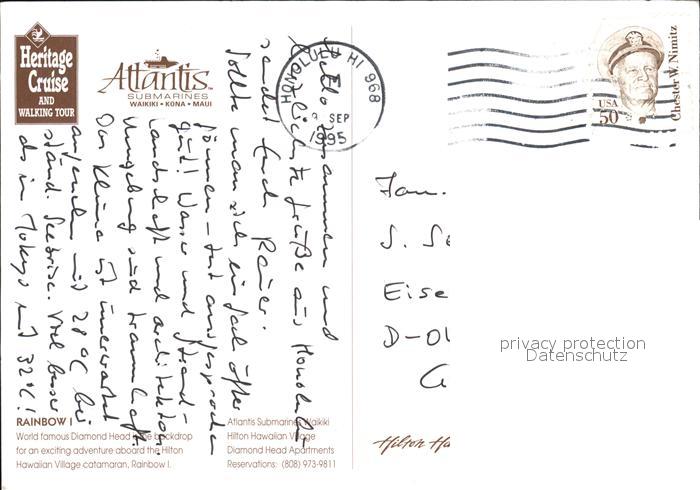 Heritage
Cruise
AND
WALKING TOUR
Atlantis™
SUBMARINES
WAIKIKI • KONA • MAUI
HONOLULU HI 968
SEP
1995
USA
50
Chester W. Nimitz
Hallo zusammen und
herzlichste Grüße aus Honolulu
sendet Euch Rainer.
Sollte man sich einfach öfter
gönnen - tut ausgesprochen
gut! Wasser und Strand
Landschaft und architekton.
Umgebung sind traumhaft.
Das Klima ist unerwartet
angenehm mit 28°C bei
ständ. Seebrise. Viel besser
als in Tokyo mit 32°C!
Fam.
S. Se
Eise
D-OL
privacy protection
Datenschutz
RAINBOW I
World famous Diamond Head is the backdrop
for an exciting adventure aboard the Hilton
Hawaiian Village catamaran, Rainbow I.
Atlantis Submarines Waikiki
Hilton Hawaiian Village
Diamond Head Apartments
Reservations: (808) 973-9811
Hilton Ha